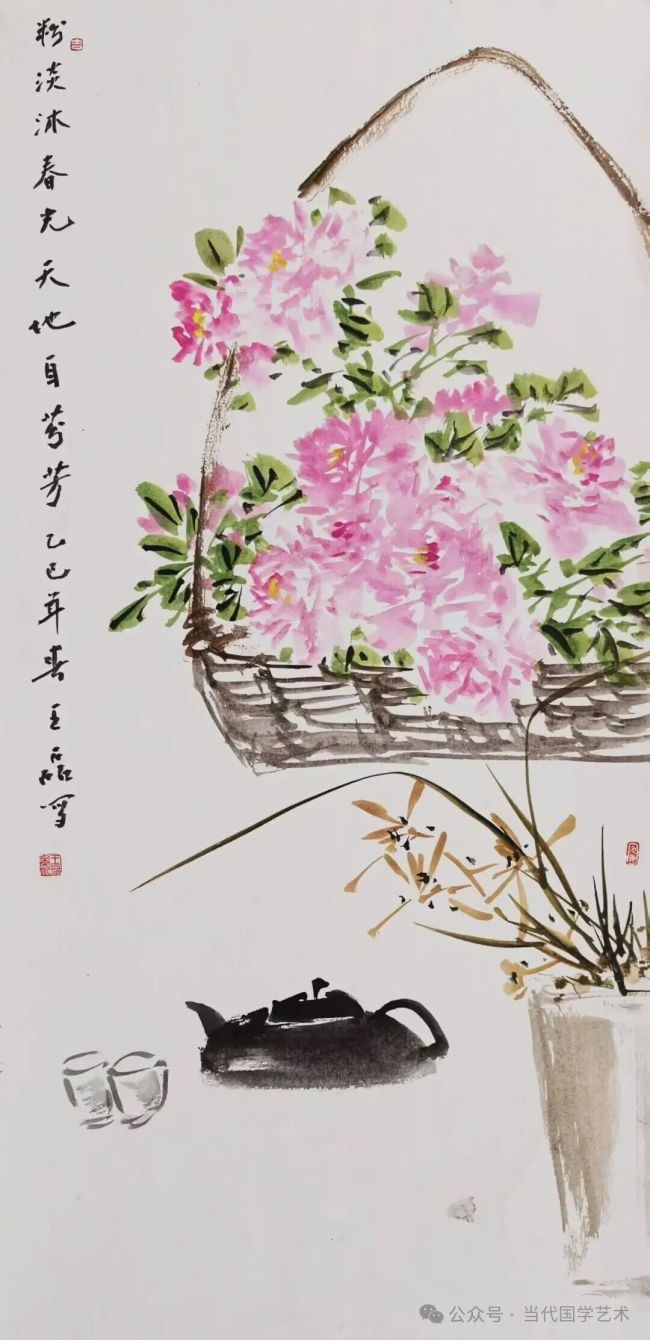 粉淡沐春光天地自芬芳乙巳年春王磊写
公众号·当代国学艺术